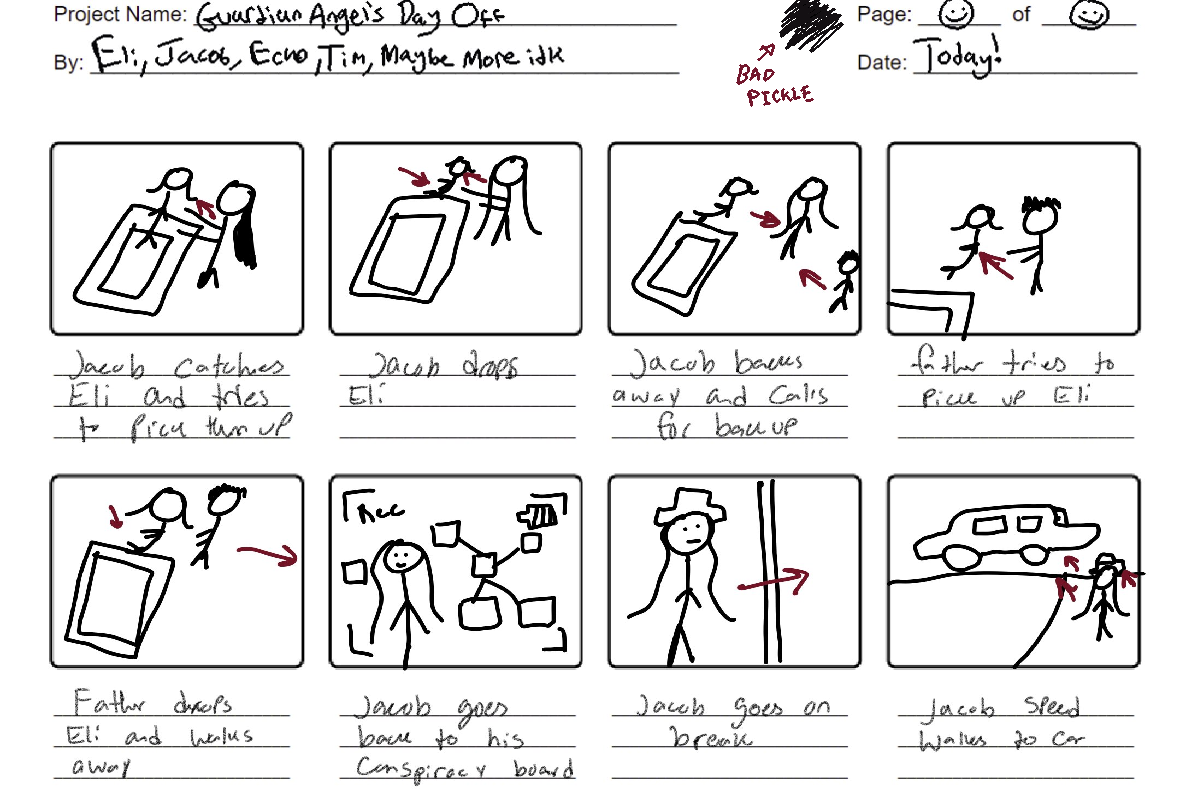 Project Name: Guardian Angel's Day Off
Page: of
By: Eli, Jacob, Echo, Tim, Maybe More idk
Date: Today!
BAD
PICKLE
Jacob catches
Eli and tries
to Pick them up
Jacob drops
Eli
Jacob backs
away and Calls
for backup
father tries to
Pick up Eli
Rec
Father drops
Eli and walks
away
Jacob goes
back to his
Conspiracy board
Jacob goes on
break
Jacob Speed
Walks to Car